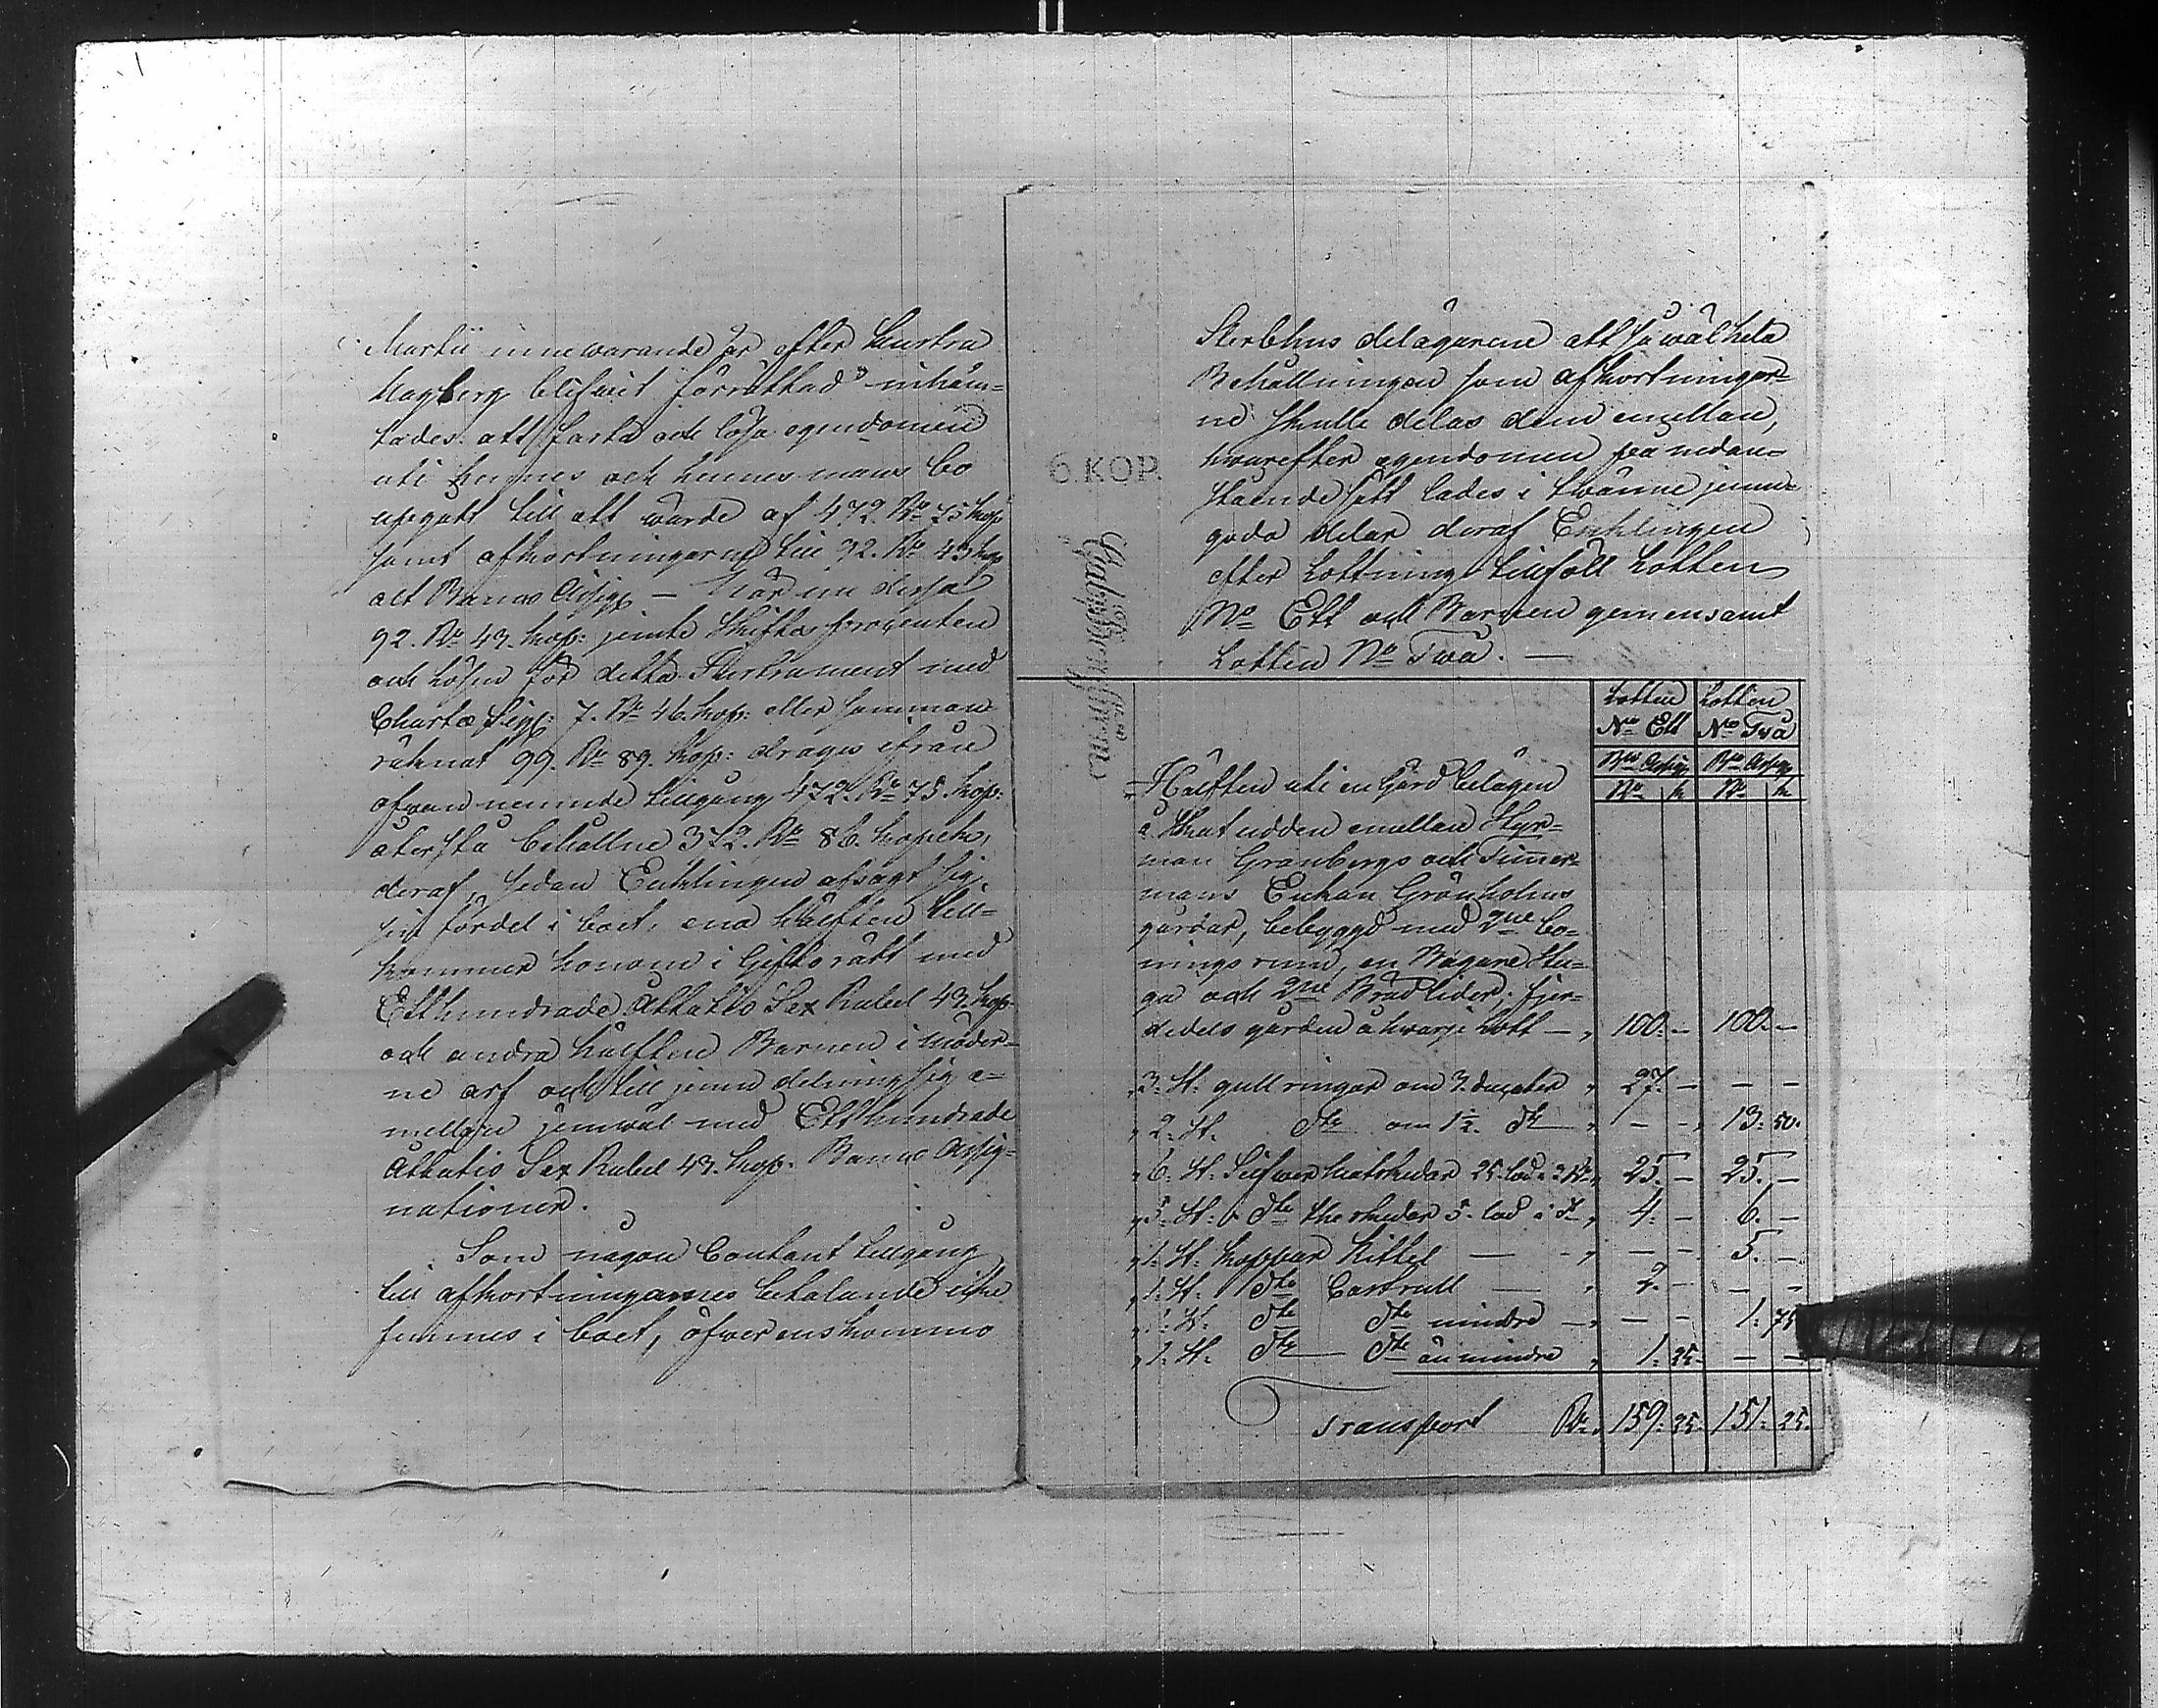 Martii innewarande år efter hustru
Hagberg blifwit förrättad inhäm-
tades: att fasta och lösa egendomen
uti hennes och hennes mans bo
upgått till ett wärde af 472. Ro 75 kop
samt afkortningarne till 92. Ro 43 kop
alt Banco Assig: — När nu dessa
92. Ro 43. kop: jemte skiftes procenten
och lösen för detta Instrument med
Charta Sig: 7. Ro 46. kop: eller samman-
räknat 99. Ro 89. kop: drages ifrån
ofwannemnde tillgång 472. Ro 75. kop:
återstå behållne 372. Ro 86. kopek,
deraf, sedan Enklingen afsagt sig
sin fördel i boet, ena hälften till-
kommer honom i Giftorätt med
Etthundrade Åttatio Sex Rubel 43. kop:
och andra hälften Barnen i möder-
ne arf och till jemn delning sig e-
mellan jemwäl med Etthundrade
Åttatio Sex Rubel 43. kop. Banco Assig-
nationer.
Som någon Contant tillgång
till afkortningarnes betalande icke
finnes i boet, öfwerenskommo
6. KOP.
Sterbhus delägarene att såwäl hela
Behållningen som afkortningar-
ne skulle delas dem emellan,
hwarefter egendomen på nedan-
stående sätt lades i twänne jemn-
goda delar deraf Enklingen
efter Lottning tillföll Lotten
No Ett och Barnen gemensamt
Lotten No Twå. —
Lotten Lotten
No Ett No Twå
Bco Assig Bco Assig
Ro k Ro k
Hälften uti en Gård belägen
å Skatudden emellan Styr-
man Granbergs och Timmer-
mans Enkan Grönholms
gårdar, bebyggd med 2ne bo-
nings rum, en Bagare Stu-
ga och 2ne Brädlider, fjer-
dedels gården å hwarje Lott — " 100. — 100. —
3. St. gullringar om 3. ducater " 27. — — —
" 2. St. Dto om 1½. Dto " — — 13. 50.
" 6. St. Silfwer matskedar 25. lod à 2 Ro " 25. — 25. —
" 5. St. Dto The skedar 5. lod à Dto " 4. — 6. —
" 1. St. koppar Kittel — " — — 5. —
" 1. St. Dto Castrull — " 2. — — —
" 1. St. Dto Dto mindre — " — — 1. 75
" 1. St. Dto Dto än mindre " 1. 25. — —
Transport Ro. 159. 25. 151. 25.